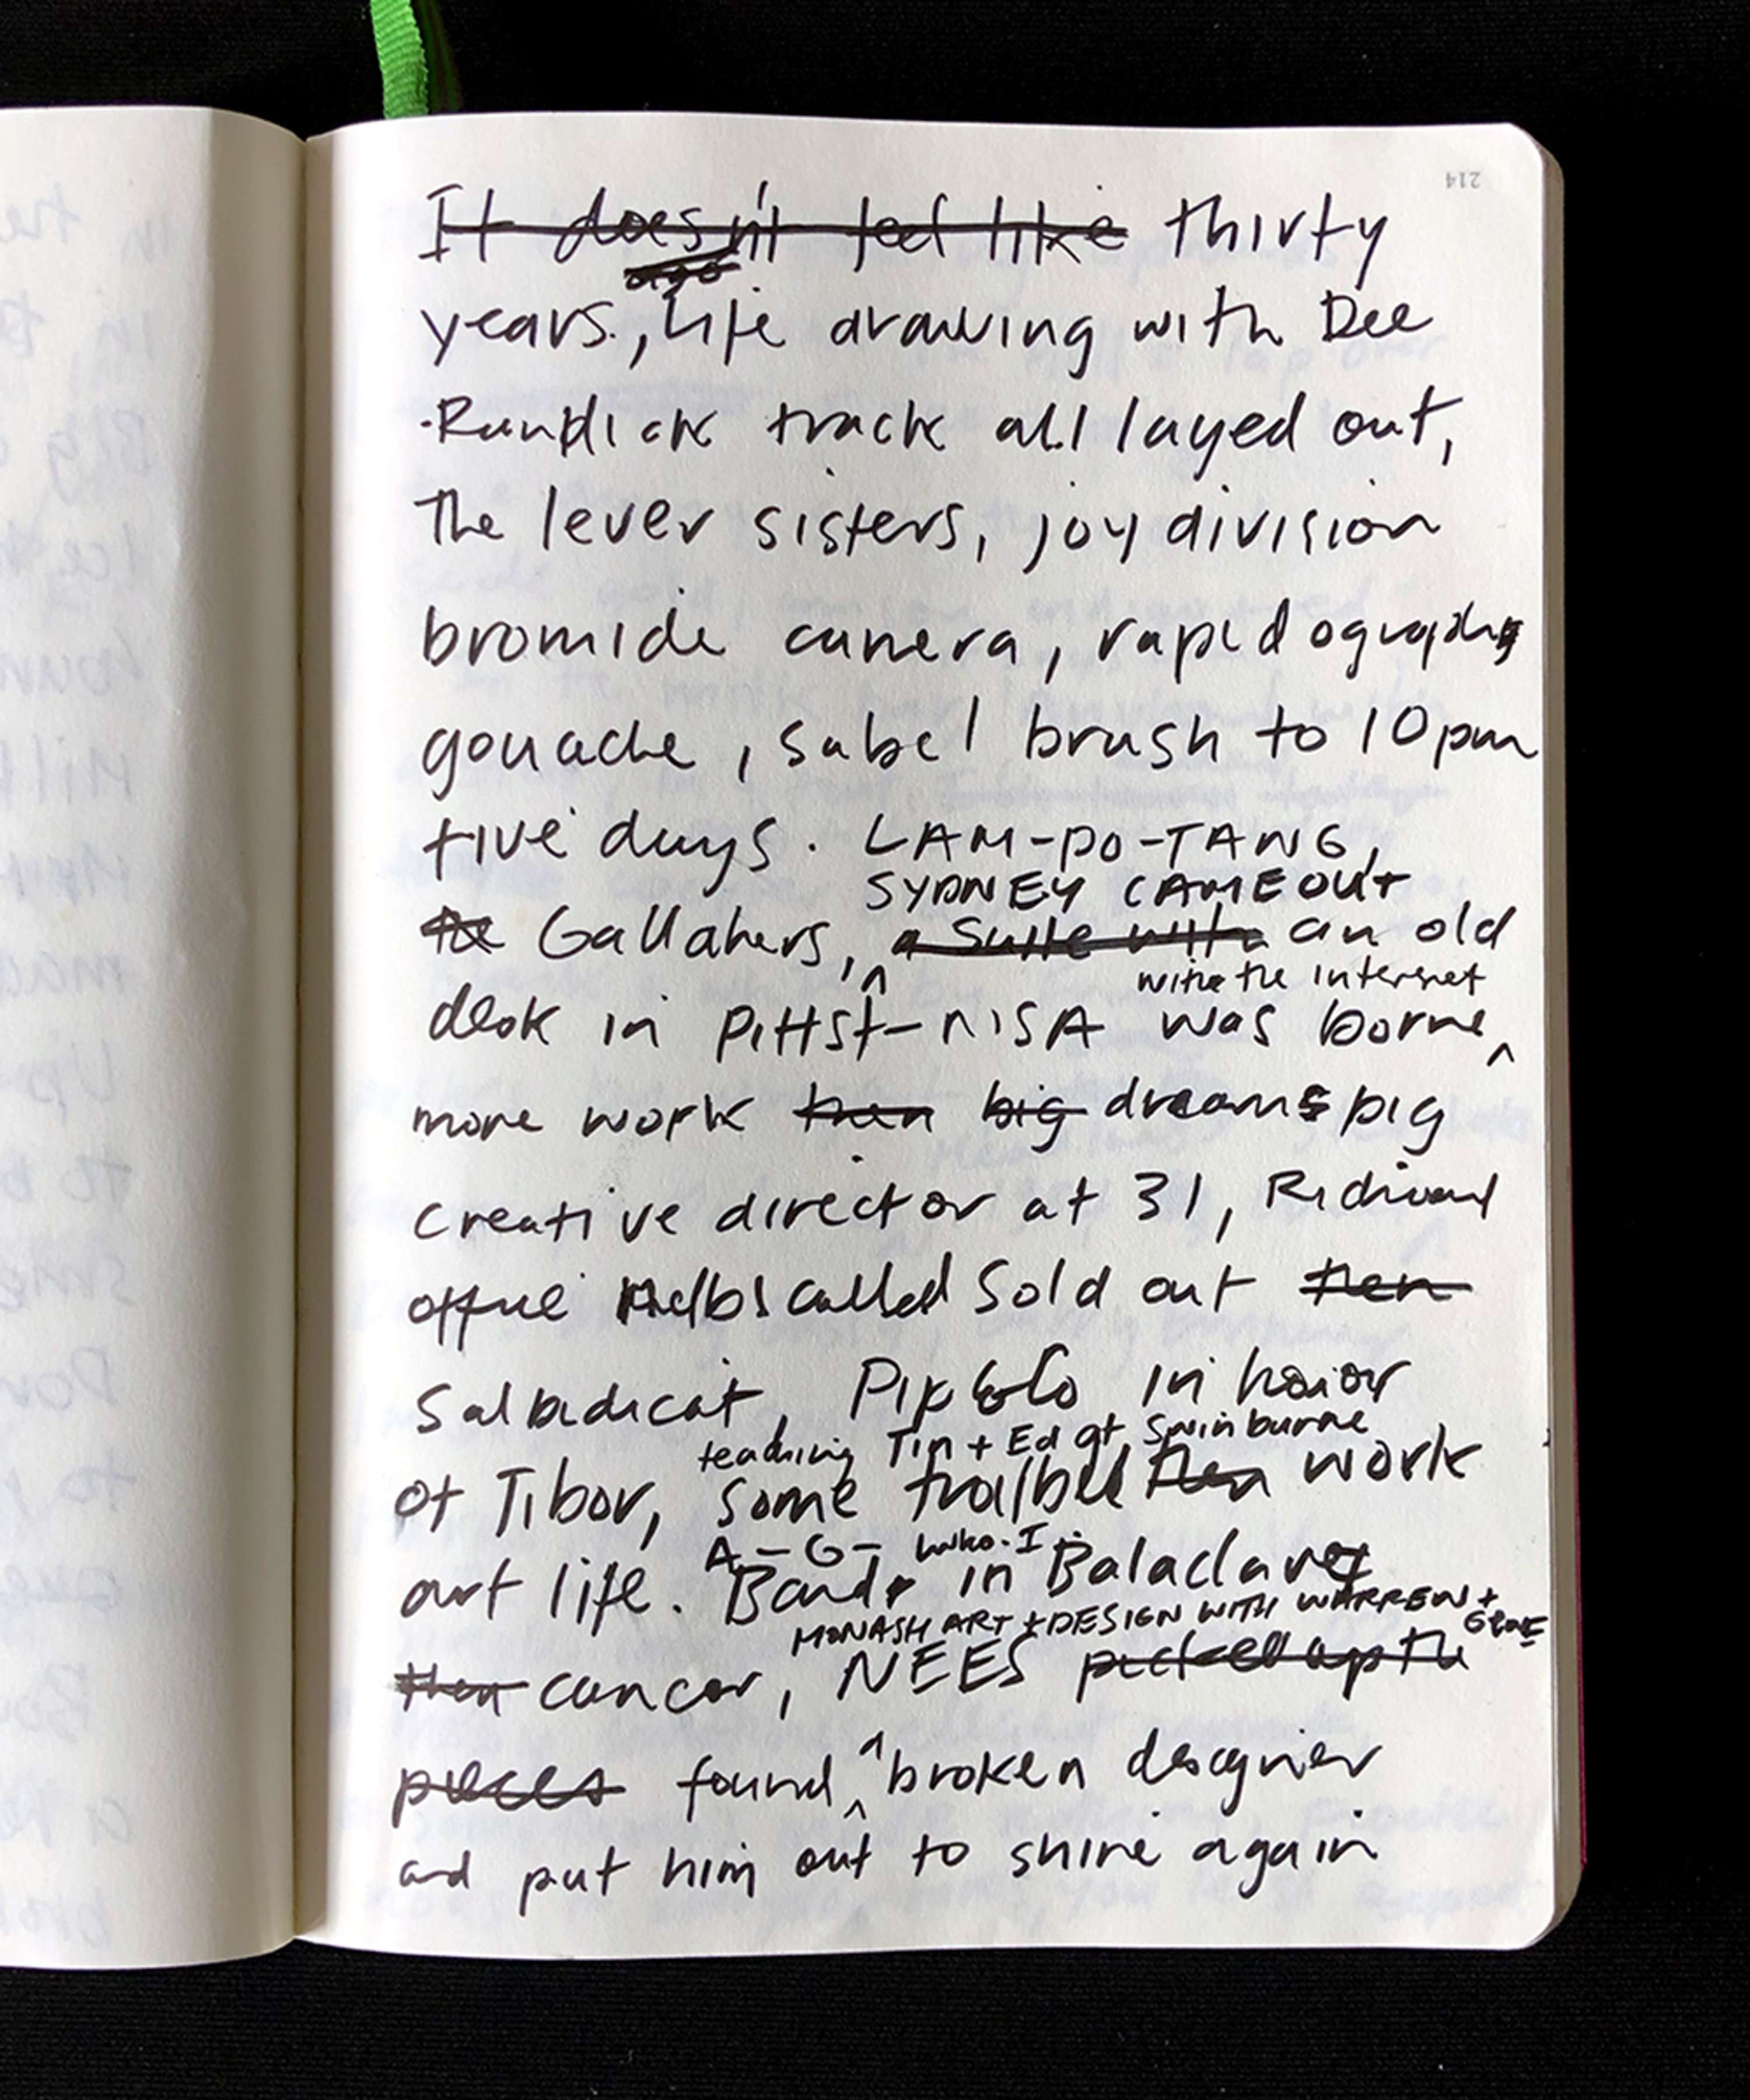 214
It doesn't feel like thirty
ago
years., Life drawing with Dee
track all layed out,
The lever sisters, joy division
bromide camera, rapidographs
gouache, sabel brush to 10pm
five days. LAM-PO-TANG,
SYDNEY CAME OUT
the Gallahers, ^ a suite with an old
with the internet
desk in Pitt St - NISA was borne ^
more work then big dreams big
creative director at 31, Richmond
office Melb called Sold out then
Salbadicat, Pip & Co in honor
teaching Tin + Ed at Swinburne
of Tibor, some then work
A - G -
art life. Band in Balaclava
MONASH ART + DESIGN WITH WARREN +
GENE
then cancer, NEES picked up the
pieces found ^ a broken designer
and put him out to shine again